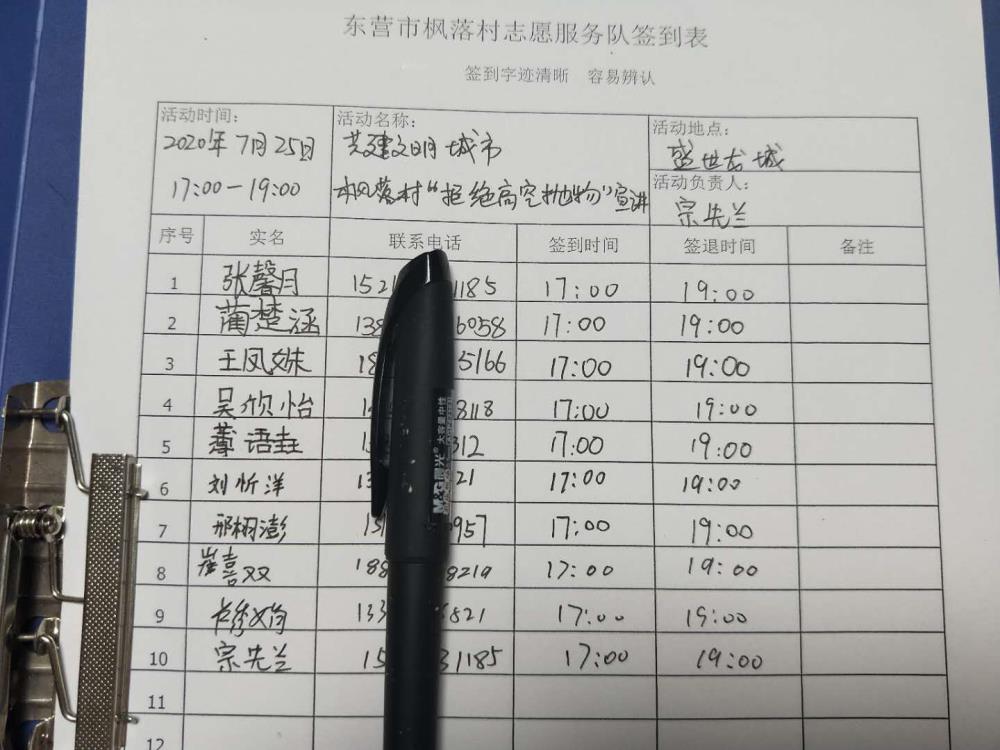 东营市枫落村志愿服务队签到表
签到字迹清晰 容易辨认
活动时间: 2020年7月25日 17:00-19:00
活动名称: 共建文明城市 枫落村“拒绝高空抛物”宣讲
活动地点: 盛世龙城
活动负责人: 宗先兰
序号 实名 联系电话 签到时间 签退时间 备注
1 张馨月 1521 1185 17:00 19:00
2 蔺楚涵 138 6058 17:00 19:00
3 王凤姝 18 5166 17:00 19:00
4 吴欣怡 8118 17:00 19:00
5 语 312 17:00 19:00
6 刘忻洋 13 21 17:00 19:00
7 邢栩澎 15 957 17:00 19:00
8 崔喜双 188 8219 17:00 19:00
9 133 6821 17:00 19:00
10 宗先兰 15 31185 17:00 19:00
11
12
M&G晨光 大容量中性